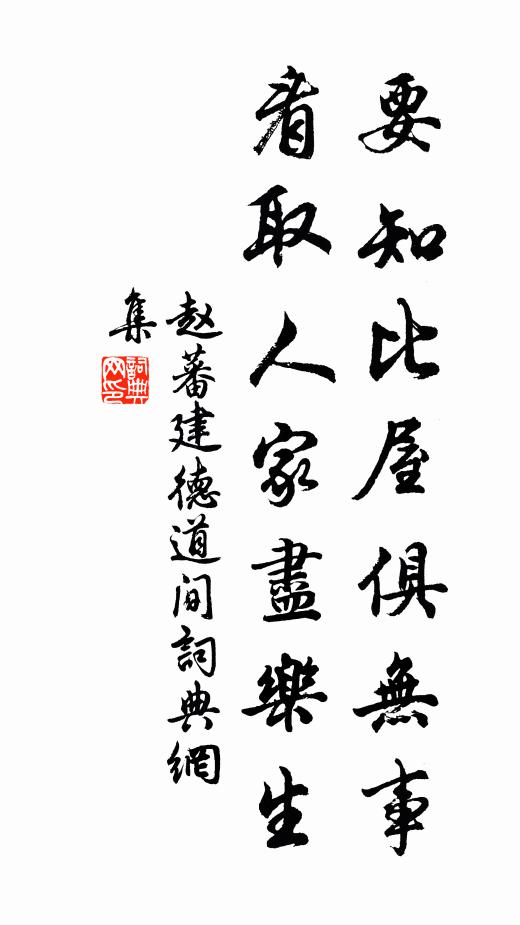 要知比屋俱無事
看取人家盡樂生
赵蕃建德道间詞典網
集
詞典網印